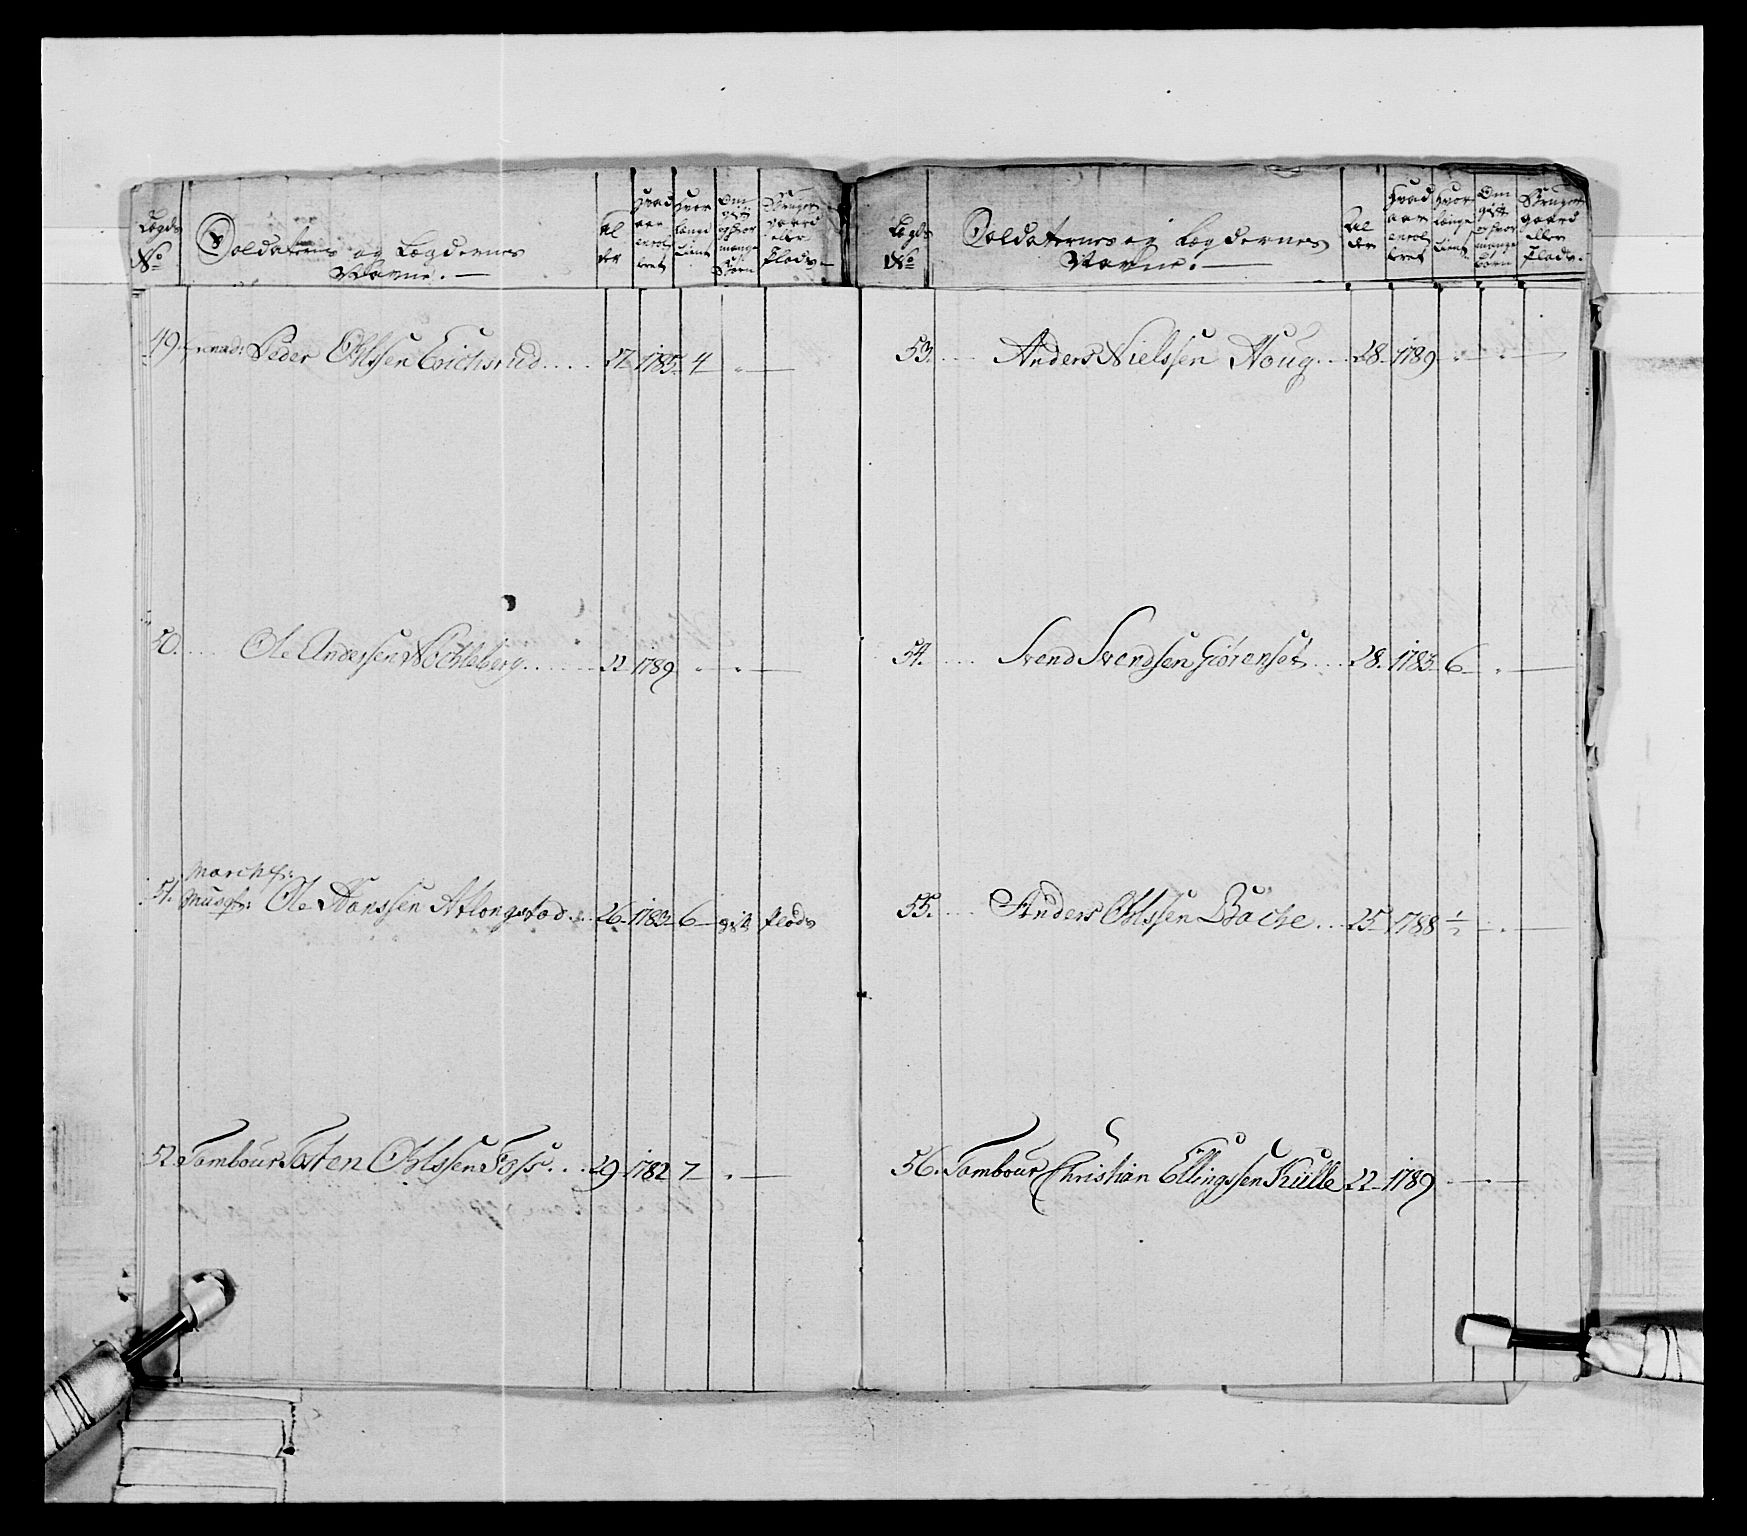 Lægds
No
Soldaternes og Lægdernes
Navne. —
Al
der
Hvad
aar
enrol
leret
Hvor
længe
tient
Om
gift
og hvor
mange
Børn
Bruger
gaard
eller
Plads —
49. Grenad: Peder Ohlssen Erichsrud ..... 27 1785 4 " —
50. .... Ole Anderssen Nochleberg ...... 22 1789 " " —
Marchf:
51. Musqt: Ole Hanssen Atlongstad ... 26 1783 6 gift Plads
52. Tambour Tosten Ohlssen Foss ... 29 1782 7 " —
Lægds
No
Soldaternes og Lægdernes
Navne. —
Al
der
Hvad
aar
enrol
leret
Hvor
længe
tient
Om
gift
og hvor
mange
Børn
Bruger
gaard
eller
Plads.
53. .... Anders Nielssen Houg ... 28 1789 " " —
54. .... Svend Svendsen Giörenset ... 28 1783 6 " —
55. .... Anders Ohlssen Bache ... 25 1788 1/2 " —
56. Tambour Christian Ellingssen Kulle 22 1789 —